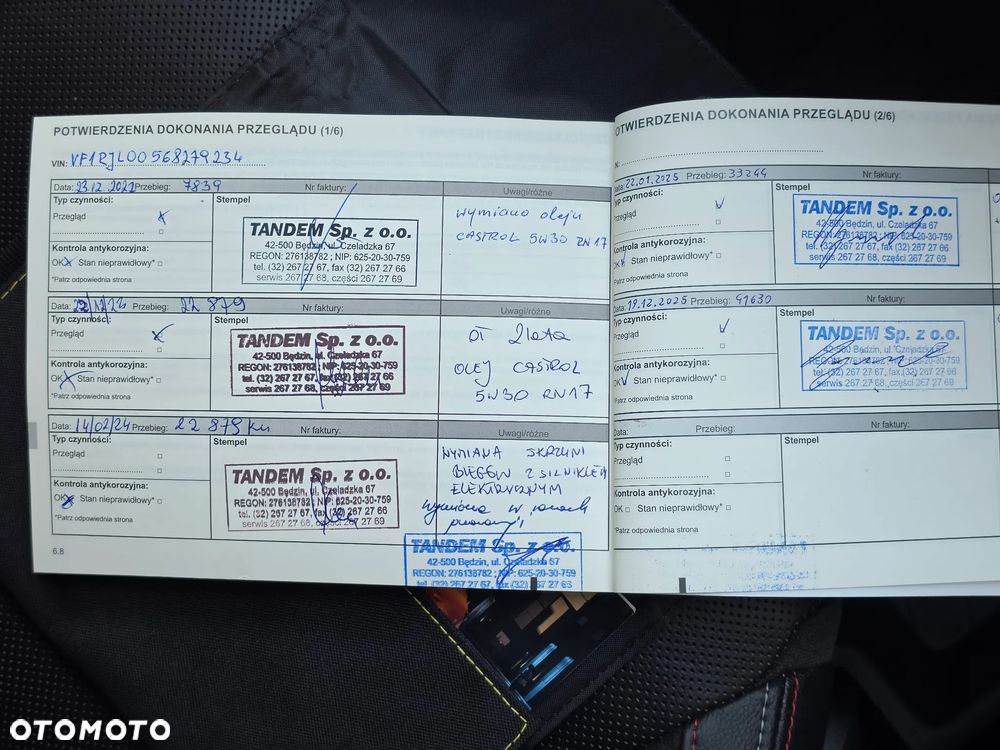 POTWIERDZENIA DOKONANIA PRZEGLĄDU (1/6)
VIN: VF1RJL00568279234
Data: 23.12.2022 Przebieg: 7839 Nr faktury:
Uwagi/różne
Typ czynności:
Stempel
Przegląd x
TANDEM Sp. z o.o.
42-500 Będzin, ul. Czeladzka 67
REGON: 276138782 ; NIP: 625-20-30-759
tel. (32) 267 27 67, fax (32) 267 27 66
serwis 267 27 68, części 267 27 69
wymiana oleju
CASTROL 5W30 RN17
Kontrola antykorozyjna:
OK x Stan nieprawidłowy* □
*Patrz odpowiednia strona
Data: Przebieg: 22 879 Nr faktury:
Uwagi/różne
Typ czynności:
Stempel
Przegląd x
TANDEM Sp. z o.o.
42-500 Będzin, ul. Czeladzka 67
REGON: 276138782 ; NIP: 625-20-30-759
tel. (32) 267 27 67, fax (32) 267 27 66
serwis 267 27 68, części 267 27 69
OT 2 lata
OLEJ CASTROL
5W30 RN17
Kontrola antykorozyjna:
OK x Stan nieprawidłowy* □
*Patrz odpowiednia strona
Data: 14/02/24 Przebieg: 22 879 km Nr faktury:
Uwagi/różne
Typ czynności:
Stempel
Przegląd □
TANDEM Sp. z o.o.
42-500 Będzin, ul. Czeladzka 67
REGON: 276138782 ; NIP: 625-20-30-759
tel. (32) 267 27 67, fax (32) 267 27 66
serwis 267 27 68, części 267 27 69
WYMIANA SKRZYNI
BIEGÓW Z SILNIKIEM
ELEKTRYCZNYM
wymiana w ramach
Kontrola antykorozyjna:
OK x Stan nieprawidłowy* □
*Patrz odpowiednia strona
TANDEM Sp. z o.o.
42-500 Będzin, ul. Czeladzka 67
REGON: 276138782 ; NIP: 625-20-30-759
tel. (32) 267 27 67, fax (32) 267 27 66
6.8
POTWIERDZENIA DOKONANIA PRZEGLĄDU (2/6)
Data: 22.01.2025 Przebieg: 33244 Nr faktury:
Typ czynności:
Stempel
Przegląd v
TANDEM Sp. z o.o.
42-500 Będzin, ul. Czeladzka 67
REGON: 276138782 ; NIP: 625-20-30-759
tel. (32) 267 27 67, fax (32) 267 27 66
serwis 267 27 68, części 267 27 69
Kontrola antykorozyjna:
OK v Stan nieprawidłowy* □
*Patrz odpowiednia strona
Data: 19.12.2025 Przebieg: 41630 Nr faktury:
Typ czynności:
Stempel
Przegląd v
TANDEM Sp. z o.o.
42-500 Będzin, ul. Czeladzka 67
REGON: 276138782 ; NIP: 625-20-30-759
tel. (32) 267 27 67, fax (32) 267 27 66
serwis 267 27 68, części 267 27 69
Kontrola antykorozyjna:
OK v Stan nieprawidłowy* □
*Patrz odpowiednia strona
Data: Przebieg: Nr faktury:
Typ czynności:
Stempel
Przegląd □
Kontrola antykorozyjna:
OK □ Stan nieprawidłowy* □
*Patrz odpowiednia strona
OTOMOTO